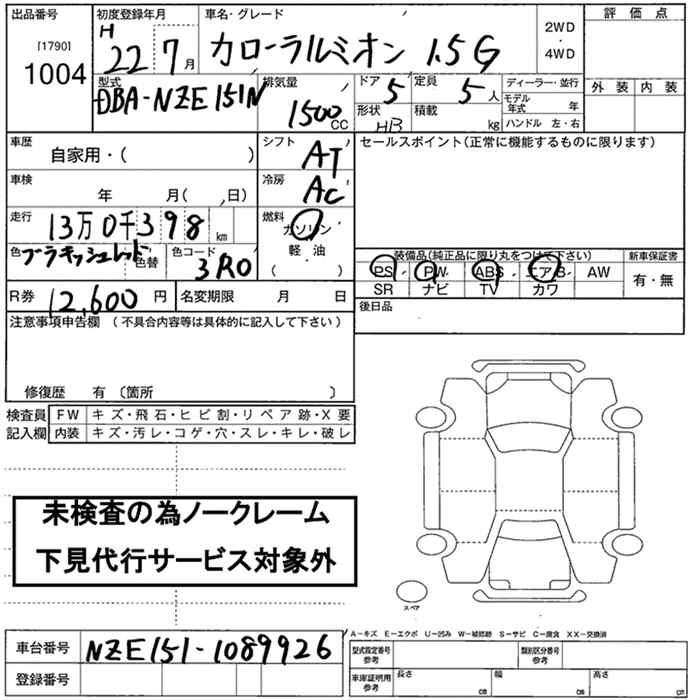 出品番号 初度登録年月 車名・グレード 評価点
[1790]
1004
H 22 7月 カローラルミオン 1.5G 2WD・4WD
外装 内装
型式 排気量 ドア 定員 ディーラー・並行
DBA-NZE151N 1500CC 5 5人 モデル年式 年
形状 積載 ハンドル 左・右
HB kg
車歴 シフト セールスポイント(正常に機能するものに限ります)
自家用・( ) AT
車検 冷房
年 月( 、日) AC
走行 燃料
13万0千398km ガソリン
色 色替 色コード 軽油
ブラキッシュレッド 3R0 ( )
装備品(純正品に限り丸をつけて下さい) 新車保証書
PS PW ABS エアB AW 有・無
SR ナビ TV カワ
R券 12,600円 名変期限 月 日
後日品
注意事項申告欄 (不具合内容等は具体的に記入して下さい)
修復歴 有 〔箇所 〕
検査員 FW キズ・飛石・ヒビ割・リペア跡・X要
記入欄 内装 キズ・汚レ・コゲ・穴・スレ・キレ・破レ
未検査の為ノークレーム
下見代行サービス対象外
スペア
A-キズ E-エクボ U-凹み W-補修跡 S-サビ C-腐食 XX-交換済
車台番号 NZE151-1089926
型式指定番号 参考 類別区分番号 参考
登録番号
車庫証明用 参考 長さ cm 幅 cm 高さ cm